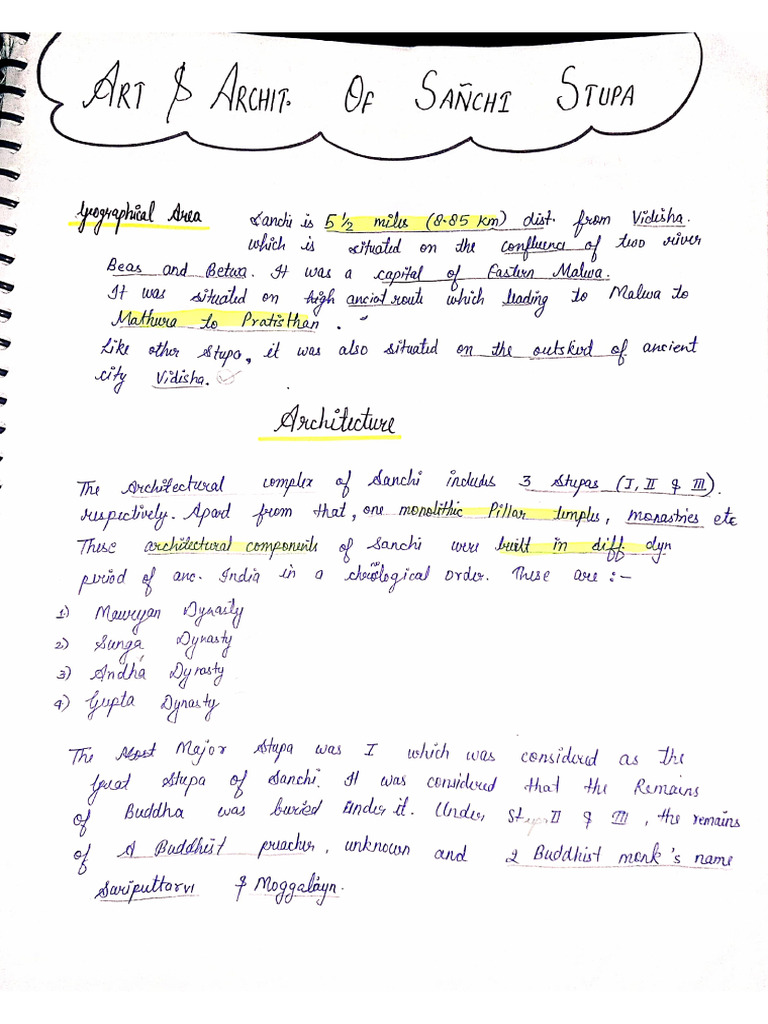 ART & ARCHIT. OF SAÑCHI STUPA
Geographical Area Sanchi is 5 1/2 miles (8.85 km) dist. from Vidisha.
which is situated on the confluence of two river
Beas and Betwa. It was a capital of Eastern Malwa.
It was situated on high anciat route which leading to Malwa to
Mathura to Pratisthan.
Like other Stupa, it was also situated on the outskud of ancient
city Vidisha.
Architecture
The Architectural complex of Sanchi includes 3 stupas (I, II & III).
respectively. Apard from that, one monolithic Pillar temples, monastries etc
These architectural components of Sanchi were built in diff. dyn
period of anc. India in a chronological order. These are :-
1) Mauryan Dynasty
2) Sunga Dynasty
3) Andha Dynasty
4) Gupta Dynasty
The Most Major Stupa was I which was considered as the
Great Stupa of Sanchi. It was considered that the Remains
of Buddha was buried Under it. Under Stupa II & III, the remains
of A Buddhist preacher, unknown and 2 Buddhist monk's name
& Moggalayn.